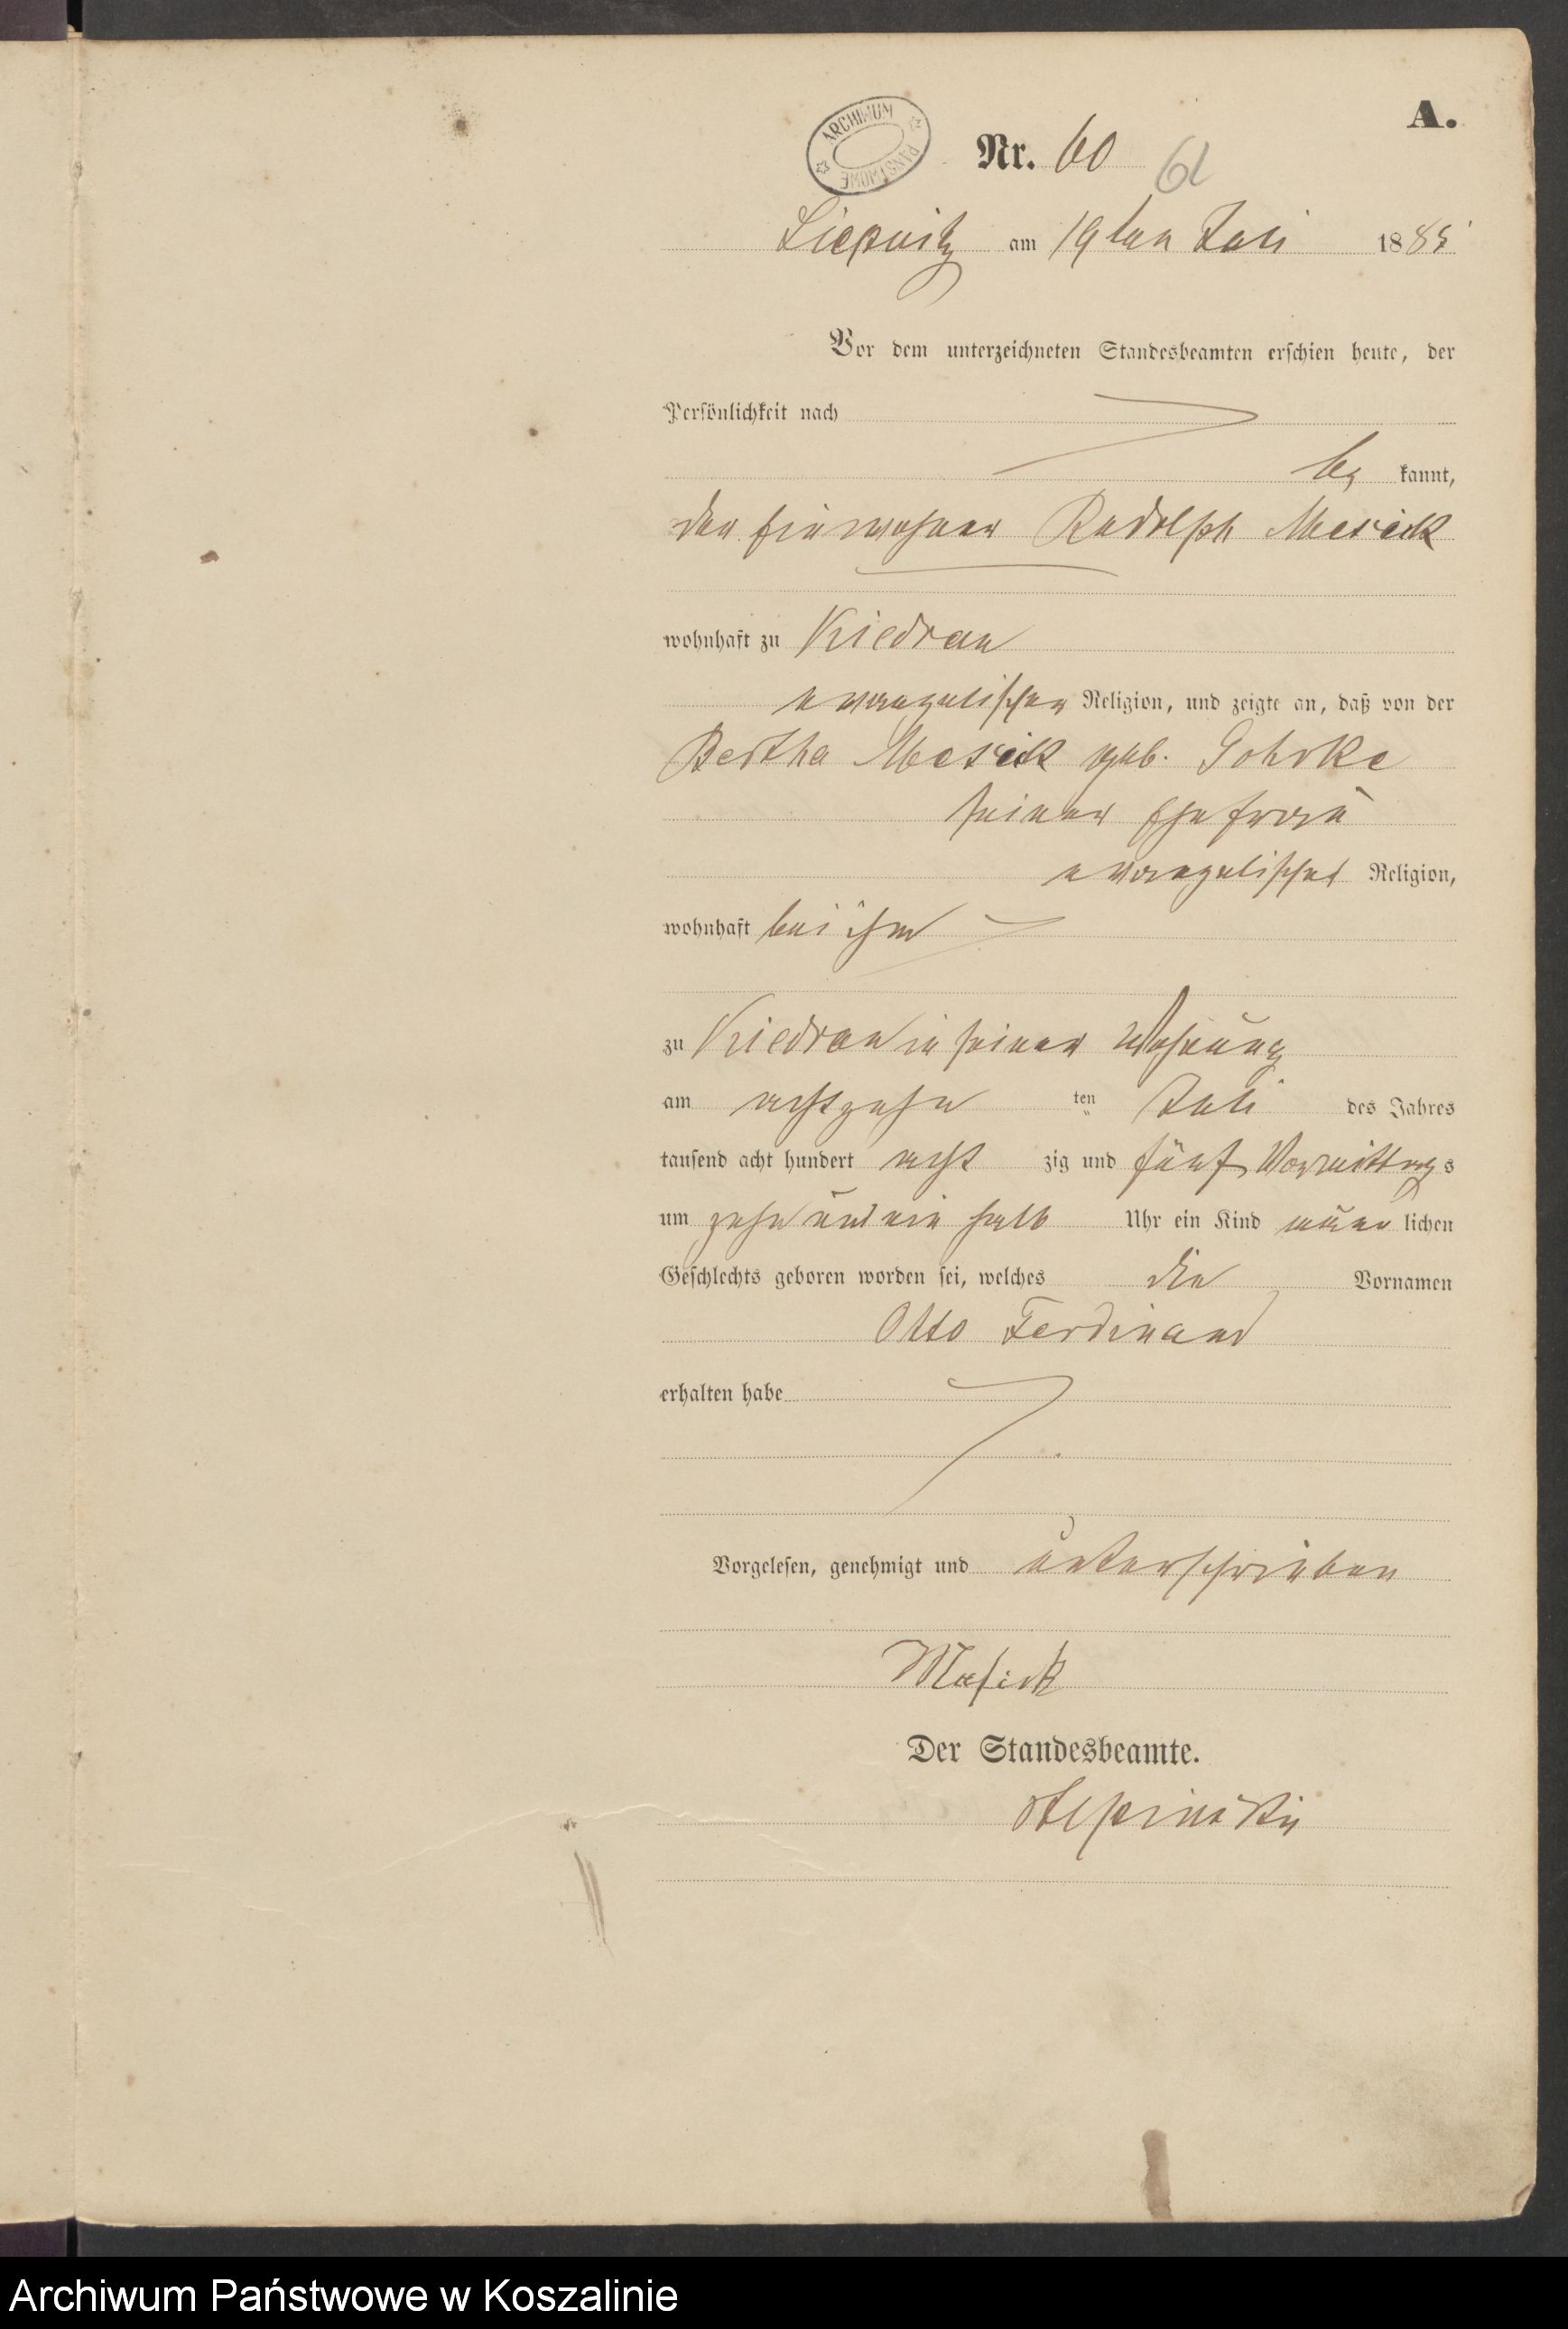 A.
ARCHIWUM PAŃSTWOWE
Nr. 60 61
Liepnitz am 19ten Juli 1885
Vor dem unterzeichneten Standesbeamten erschien heute, der
Persönlichkeit nach
be kannt,
der Einwohner Rudolph Mesick
wohnhaft zu Kiedrau
evangelischer Religion, und zeigte an, daß von der
Bertha Mesick geb. Gohrke
seiner Ehefrau
evangelischer Religion,
wohnhaft bei ihm
zu Kiedrau in seiner Wohnung
am achtzehn ten Juli des Jahres
tausend acht hundert acht zig und fünf Vormittags
um zehn und ein halb Uhr ein Kind männ lichen
Geschlechts geboren worden sei, welches die Vornamen
Otto Ferdinand
erhalten habe
Vorgelesen, genehmigt und unterschrieben
Mesick
Der Standesbeamte.
Archiwum Państwowe w Koszalinie